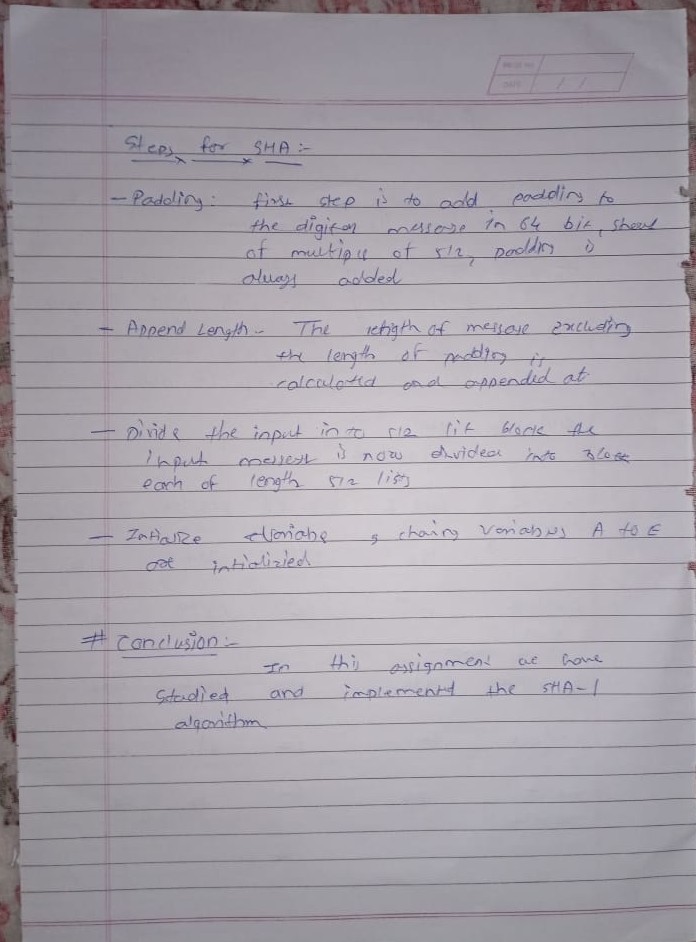 PAGE NO
DATE / /
Steps for SHA :-
- Padding : first step is to add padding to
the message in 64 bit, short
of multiple of 512, padding is
always added
- Append Length - The length of message excluding
the length of padding is
calculated and appended at
- Divide the input into 512 bit the
input is now divided into
each of length 512
- variable 5 chaing variables A to E
are intializied
# Conclusion :-
In this assignment we have
Studied and implemented the SHA-1
algorithm